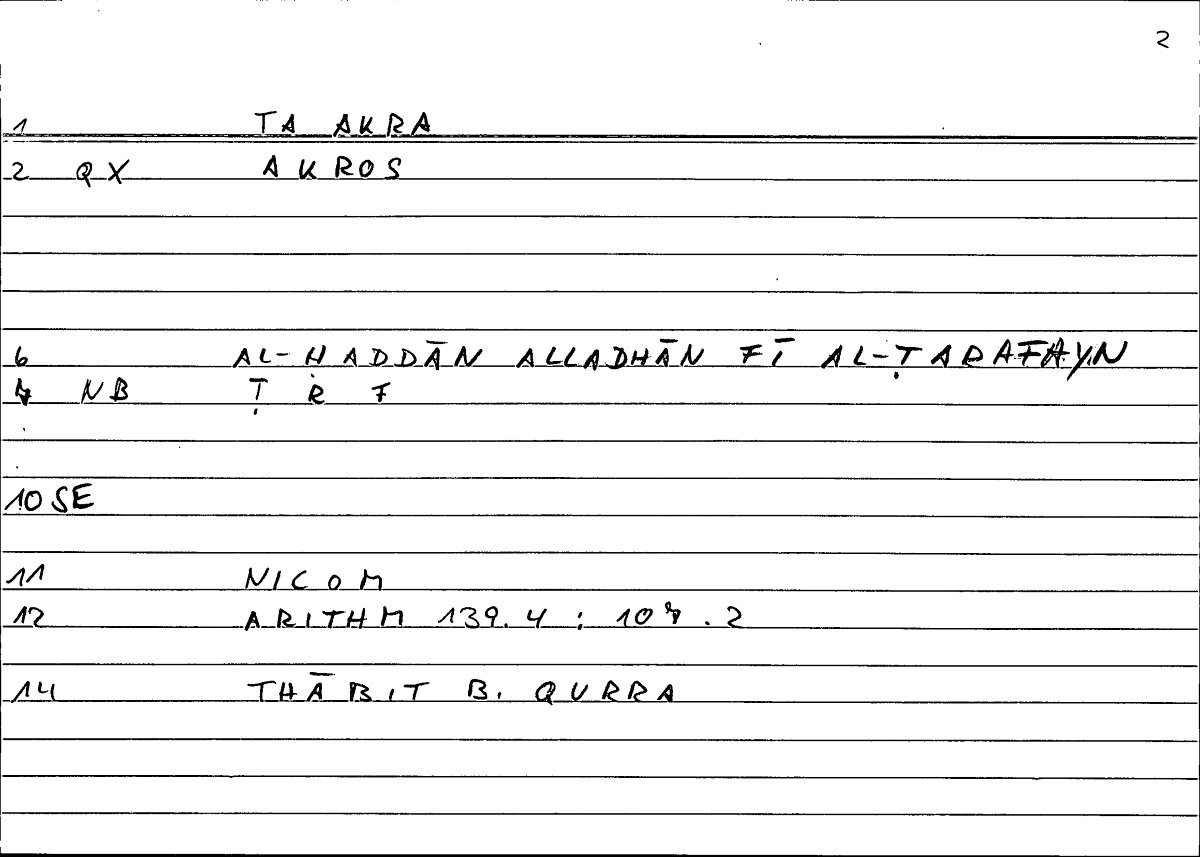 2
1 TA AKRA
2 QX AKROS
6 AL-ḤADDĀN ALLADHĀN FĪ AL-ṬARAFAYN
7 NB Ṭ R F
10 SE
11 NICOM
12 ARITHM 139.4 : 107.2
14 THĀBIT B. QURRA